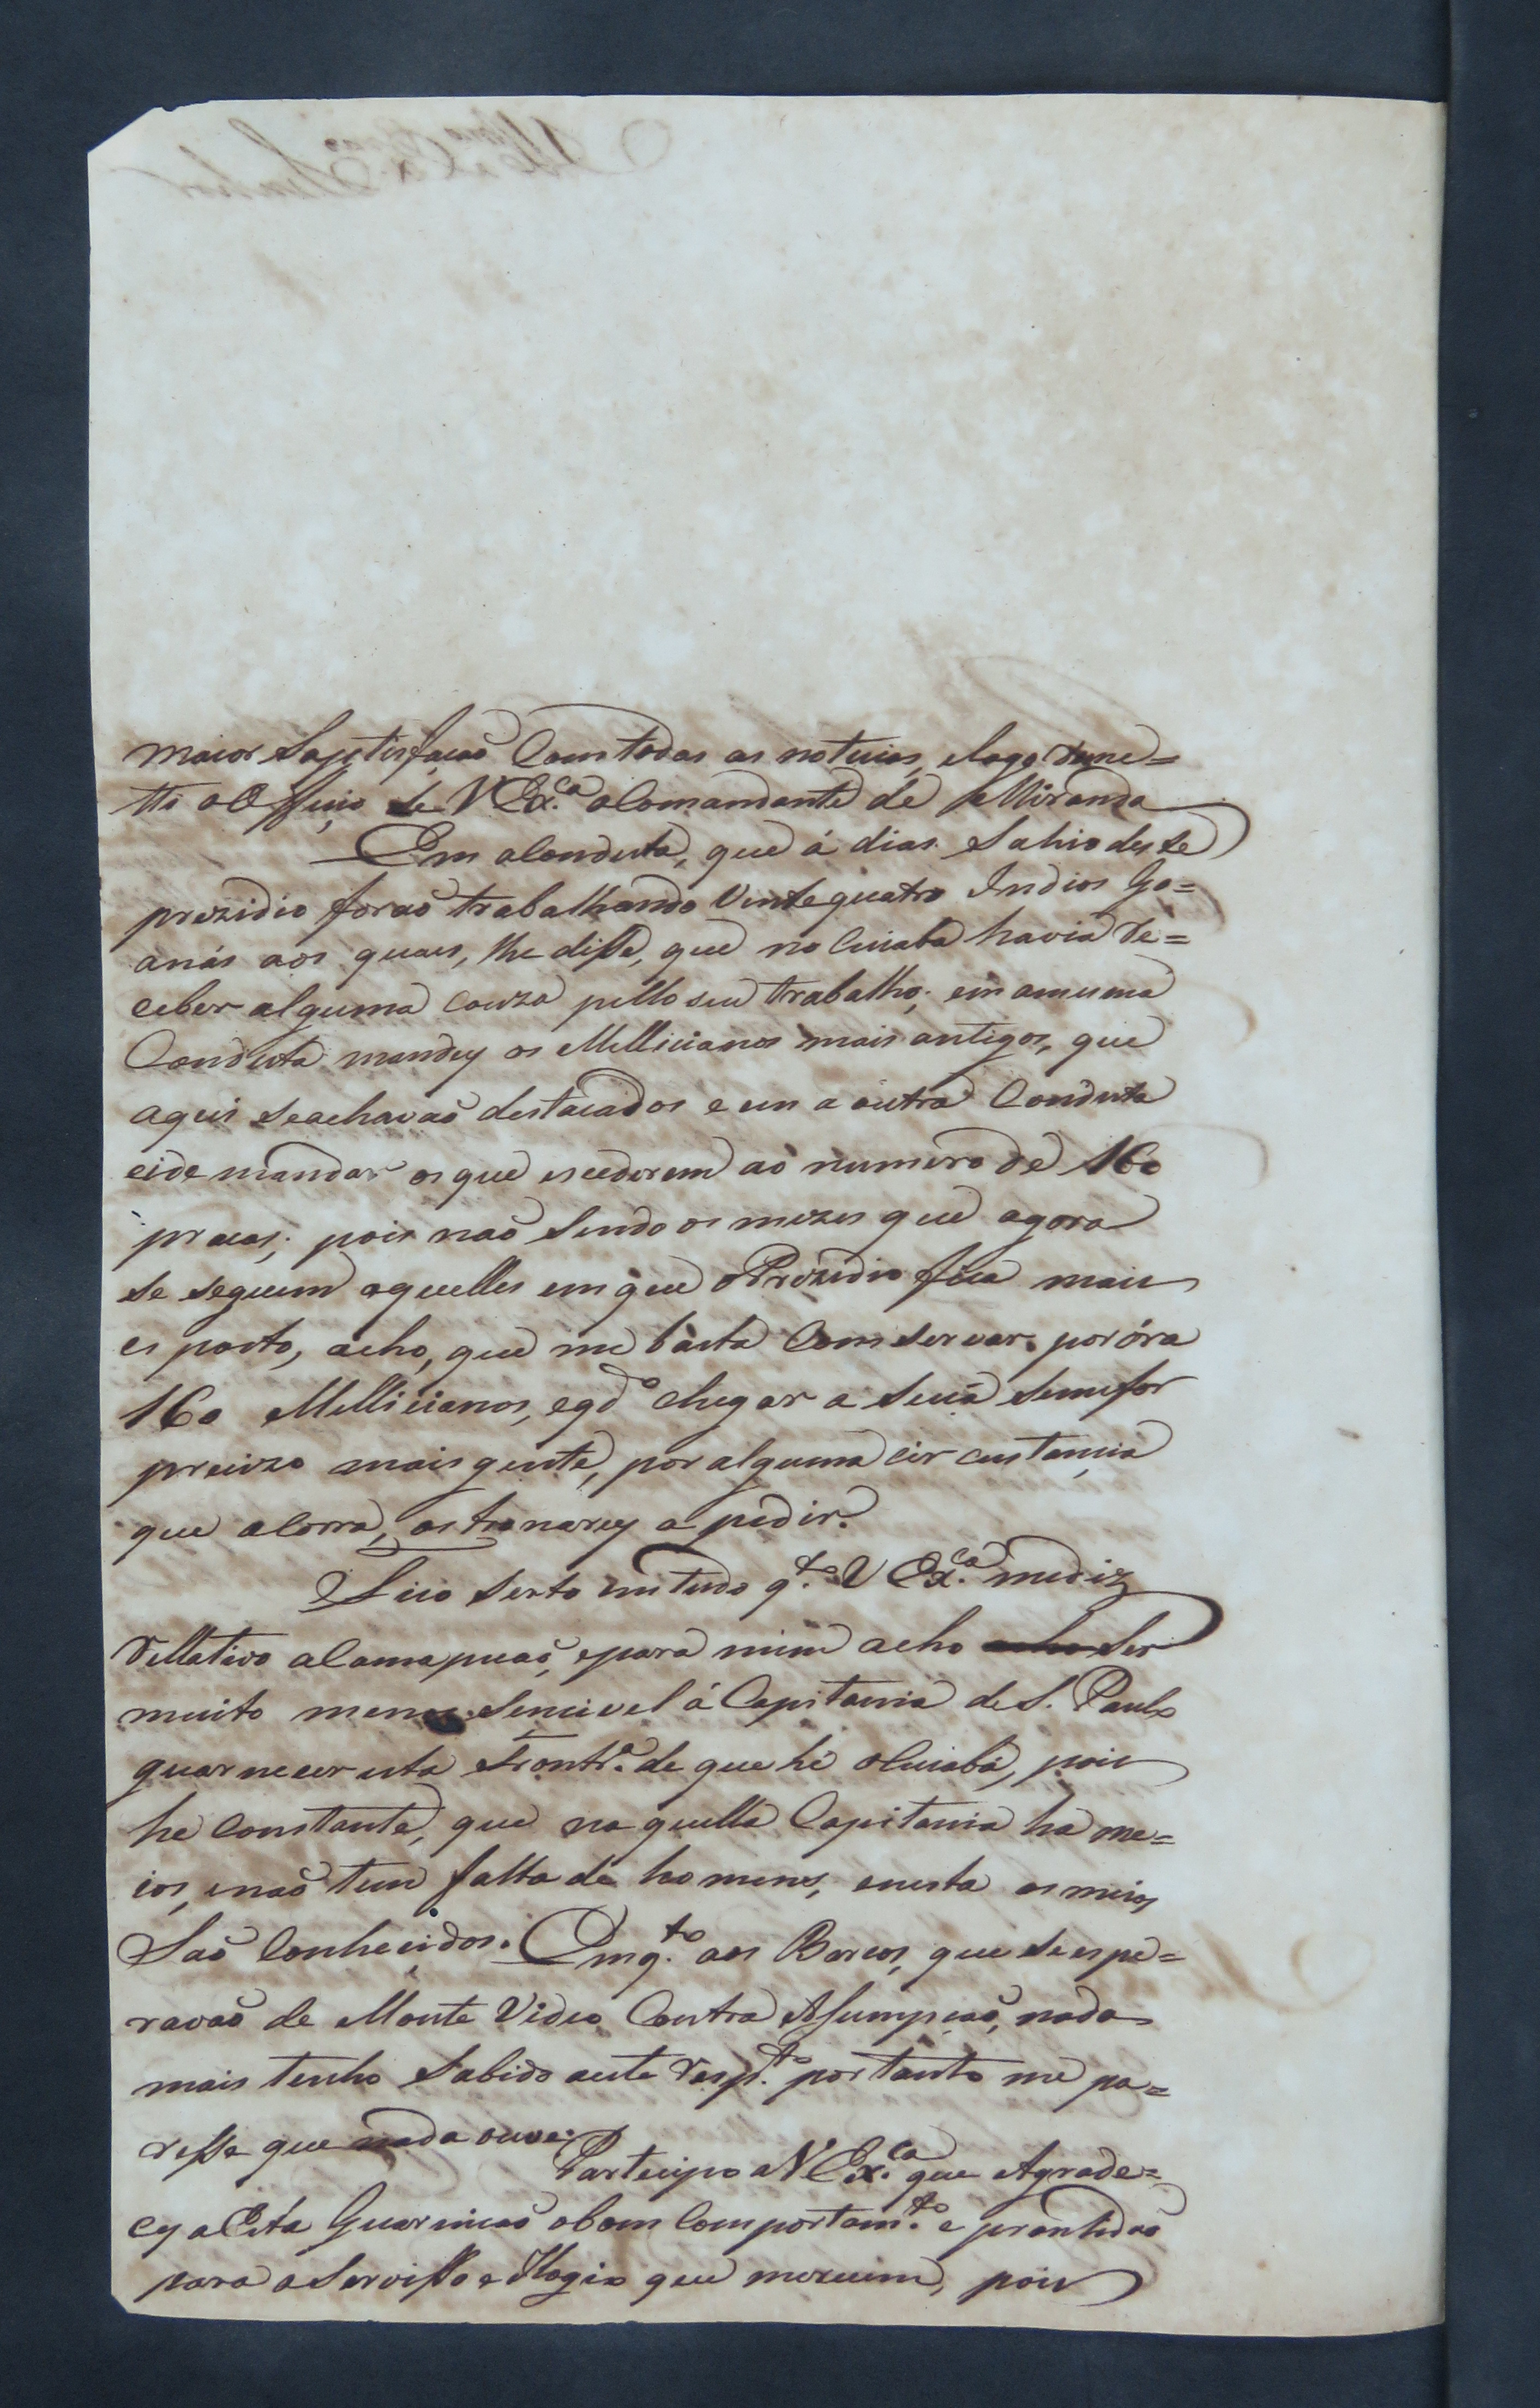 maior Sapetisfacaõ Com todas as noticias, elogo reme=
tti o Officio de V Ex.ca aComandante de Miranda
Em aConduta, que á dias Sahio deste
prezidio foraõ trabalhando Vinte quatro Indios Go=
anás aos quais, lhe disse, que no Cuiaba havia re=
ceber alguma couza pello seu trabalho; em amesma
Conduta mandey os Mellicianos mais antigos, que
aqui seachavaõ destacados e em a outra Conduta
eide mandar os que escederem ao numero de 160
pracas; pois naõ Sendo os mezes que agora
se seguem aquelles em que oPrezidio fica mais
es posto, acho, que me basta Comservar por óra
160 Mellicianos, eqdo chegar a Seca Seme for
precizo mais gente, por alguma circustançia
que acorra, os tronarey a pedir.
Fico Serto em tudo q.to V Ex.ca mediz
rellativo aCamapuaõ, epara mim acho Ser
muito menos Sencivel á Capitania de S. Paulo
guarnecer esta Frontr.a de que hé oCuiabá, pois
he Constante, que naquella Capitania ha me=
ios, enaõ tem falta de homens, enesta os meios
Saõ Conhecidos. Emq.to aos Barcos, que seespe=
ravaõ de Monte Video Contra Asumpcaõ, nada
mais tenho Sabido aeste resp.to portanto me pa=
resse que nada ouve.
Partecipo a V Ex.ca que Agrade=
cy a Esta Guarnicaõ obom Comportam.to e prontidaõ
para o Servisso e Ellogio que merecem, pois